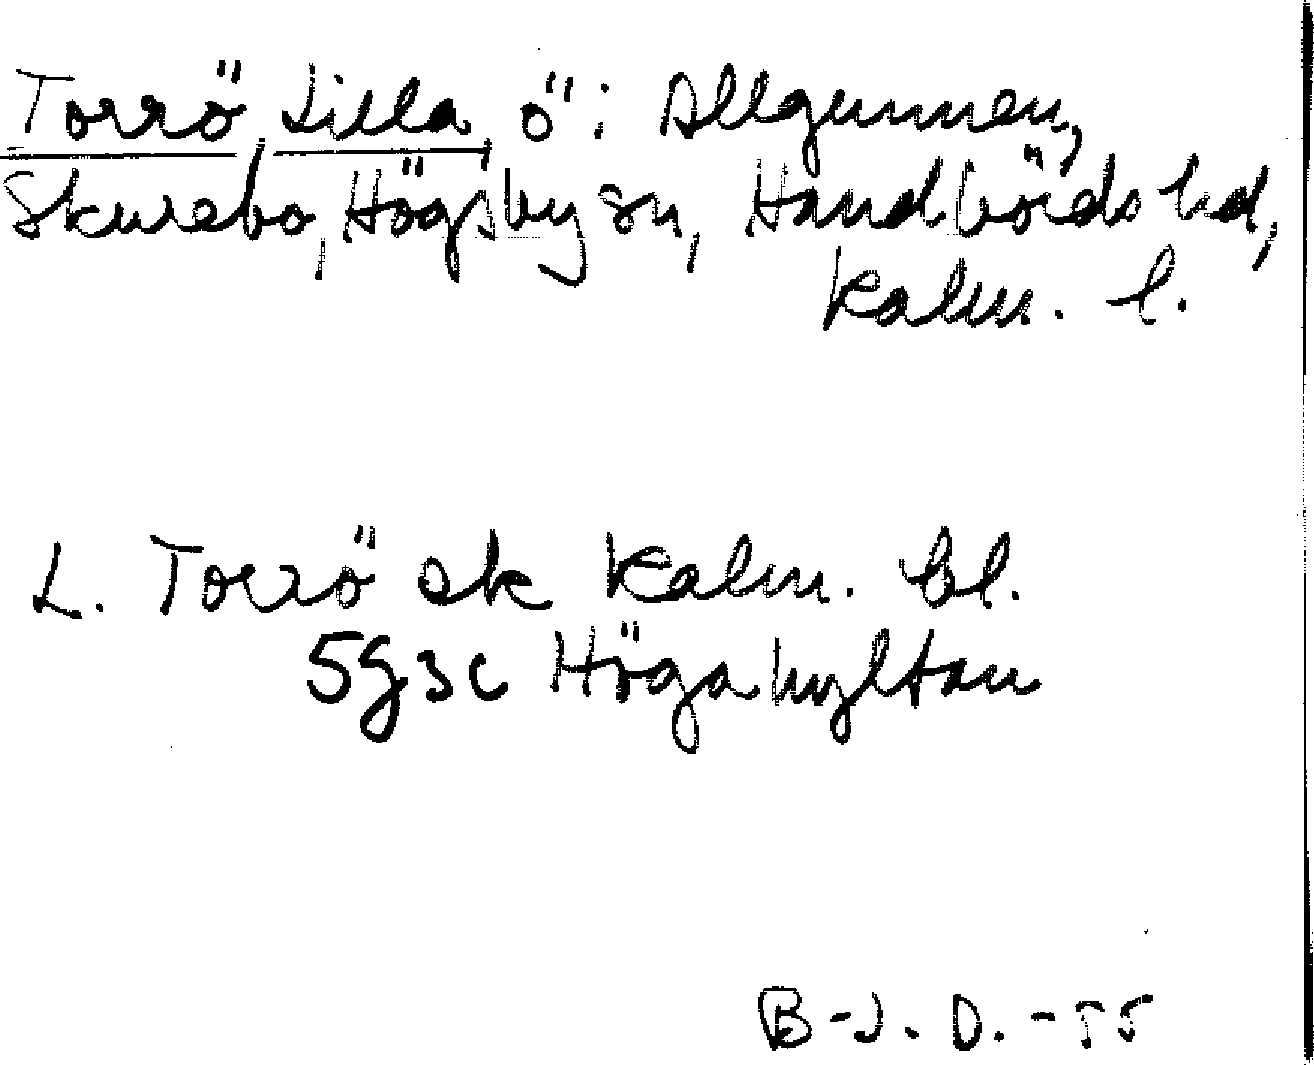 Torrö, Lilla, ö i Allgunnen,
Skurebo, Högsby sn, Handbörds hd,
Kalm. l.
L. Torrö ek Kalm. bl.
5g3c Högahyltan
B-J. D. -55